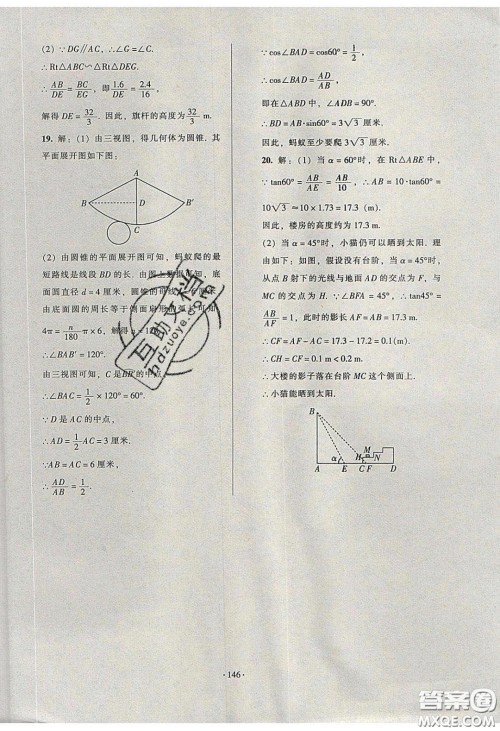 (2) ∵ DG∥AC，∴ ∠G = ∠C.
∴ Rt△ABC∽Rt△DEG.
∴ AB/DE = BC/EG，即 1.6/DE = 2.4/16，
解得 DE = 32/3. 因此，旗杆的高度为 32/3 m.
19. 解：(1) 由三视图，得几何体为圆锥. 其
平面展开图如下图：
A
B
D
B′
C
(2) 由圆锥的平面展开图可知，蚂蚁爬的最
短路线是线段 BD 的长. 由
底面圆直径 d = 4 厘米，
由底面圆的周长等于侧面扇形
4π = n/180 π × 6，解得
∴ ∠BAB′ = 120°.
由三视图可知，C 是
∴ ∠BAC = 1/2 × 120° = 60°.
∵ D 是 AC 的中点，
∴ AD = 1/2 AC = 3 厘米，
∵ AB = AC = 6 厘米，
∴ AD/AB = 1/2.
∵ cos∠BAD = cos60° = 1/2，
∴ cos∠BAD = AD/AB，
即在△ABD 中，∠ADB = 90°.
∴ BD = AB·sin60° = 3√3 厘米.
因此，蚂蚁至少要爬 3√3 厘米.
20. 解：(1) 当 α = 60°时，在 Rt△ABE 中，
∵ tan60° = AB/AE = AB/10，∴ AB = 10·tan60° =
10√3 ≈ 10 × 1.73 = 17.3 (m).
因此，楼房的高度约为 17.3 m.
(2) 当 α = 45°时，小猫仍可晒到太阳. 理
由如下：如图，假设没有台阶，当 α = 45°时，
从点 B 射下的光线与地面 AD 的交点为 F，与
MC 的交点为 H. ∵ ∠BFA = 45°，∴ tan45° =
AB/AF = 1，此时的影长 AF = AB = 17.3 m.
∴ CF = AF − AC = 17.3 − 17.2 = 0.1 (m).
∴ CH = CF = 0.1 m < 0.2 m.
∴ 大楼的影子落在台阶 MC 这个侧面上.
∴ 小猫能晒到太阳.
B
M
H
N
α
A
E
C F
D
互助文档
bdzuoye.com
· 146 ·
答案圈
MXQE.COM